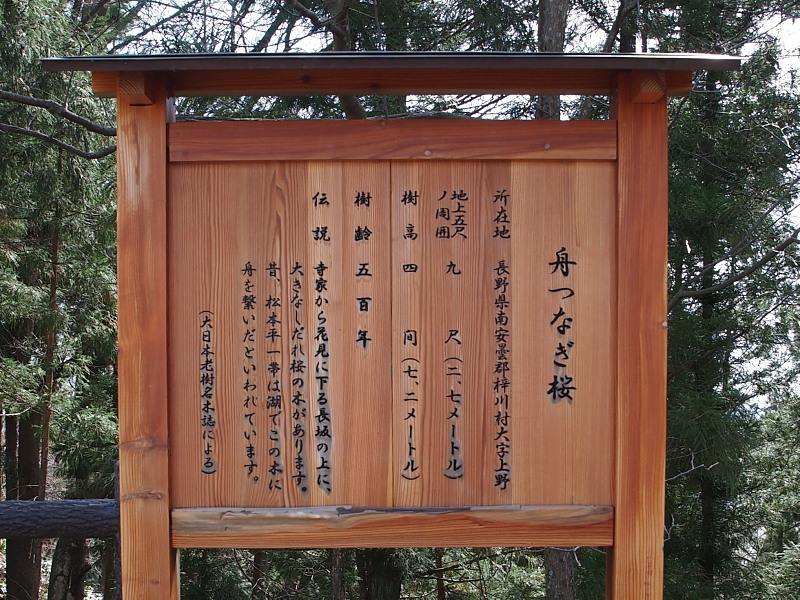 舟つなぎ桜
所在地 長野県南安曇郡梓川村大字上野
地上五尺ノ周囲 九尺(二、七メートル)
樹高 四間(七、二メートル)
樹齢 五百年
伝説 寺家から花見に下る長坂の上に、
大きなしだれ桜の木があります。
昔、松本平一帯は湖でこの木に
舟を繋いだといわれています。
(大日本老樹名木誌による)